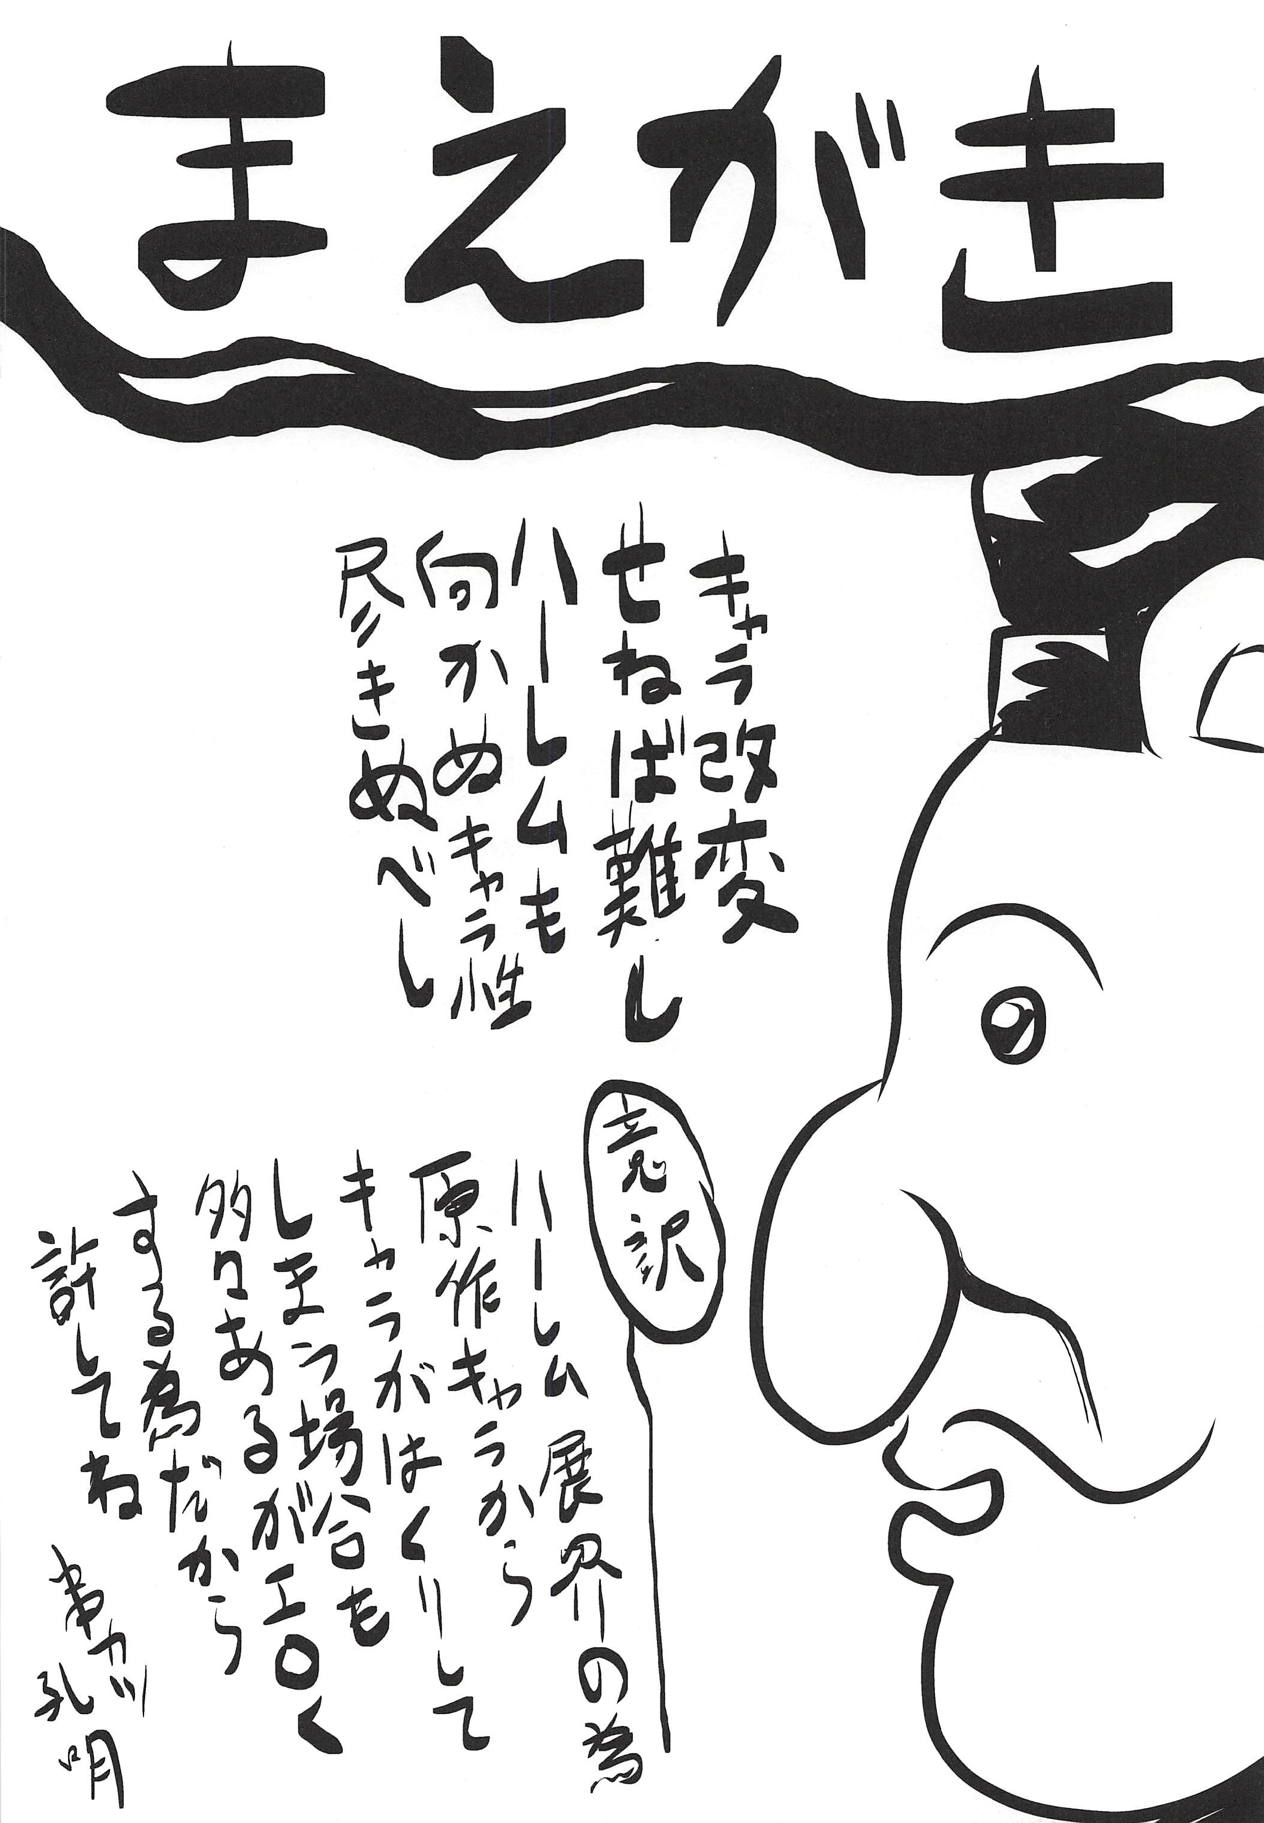 まえがき
キャラ改変
せねば難し
ハーレムも
向かぬキャラ性
尽きぬべし
意訳
ハーレム展界の為
原作キャラから
キャラがはくりして
しまう場合も
多々あるがエロく
する為だから
許してね
串カツ
孔明